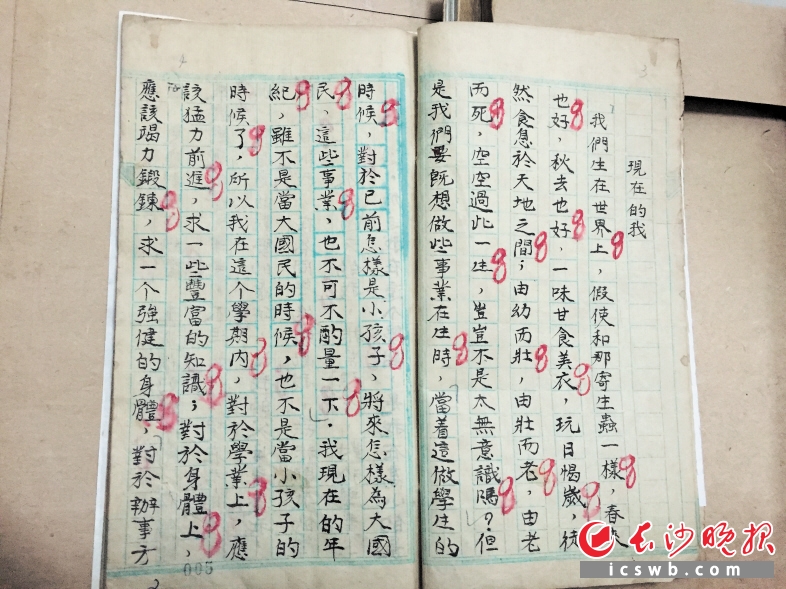 現在的我
我們生在世界上，假使和那寄生蟲一樣，春來
也好，秋去也好，一味甘食美衣，玩日愒歲，
然食息於天地之間；由幼而壯，由壯而老，由老
而死，空空過此一生，豈豈不是太無意識嗎？但
是我們要既想做些事業在生時，當着這做學生的
時候，對於已前怎樣是小孩子，將來怎樣為大國
民，這些事業，也不可不酌量一下．我現在的年
紀，雖不是當大國民的時候，也不是當小孩子的
時候了，所以我在這个學期內，對於學業上，應
該猛力前進，求一些豐富的知識；對於身體上，
應該竭力鍛鍊，求一个強健的身體，對於辦事方
005
长沙晚报
icswb.com